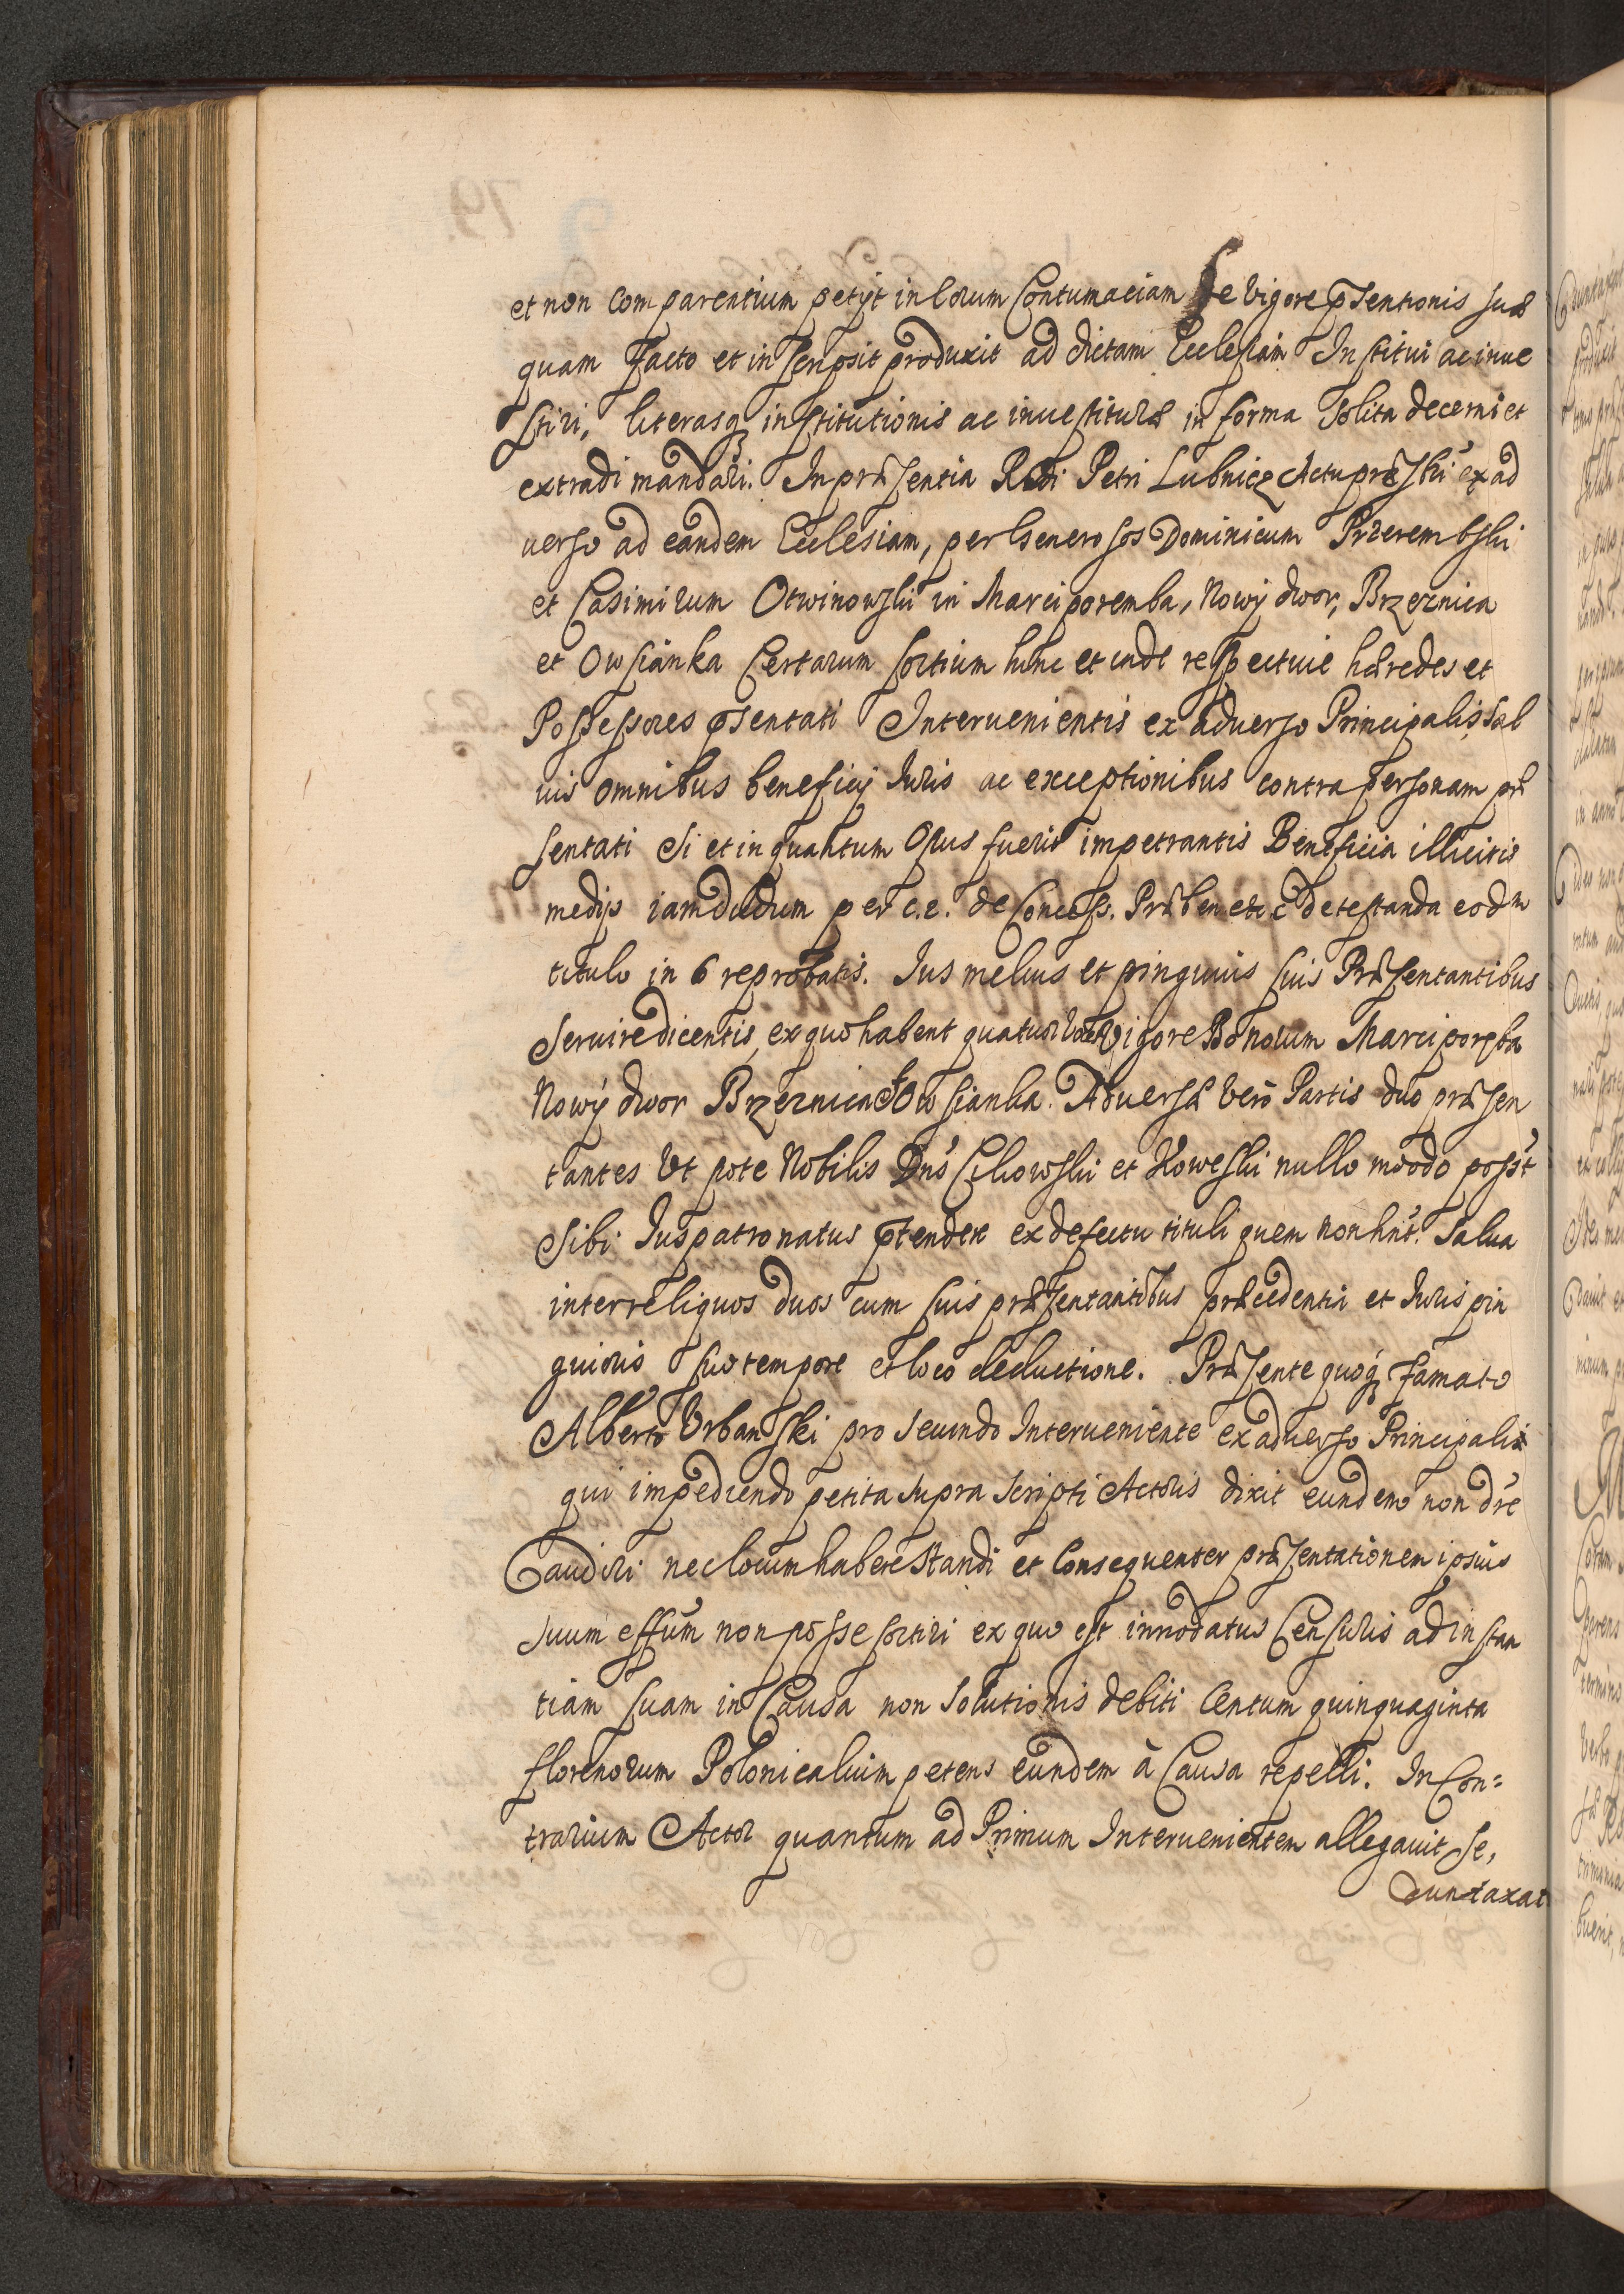 et non comparentium petÿt in eorum Contumaciam Se vigore p̄sentionis suæ
quam facto et in scripsit produxit ad dictam Ecclesiam Institui ac inue
stiri, literasq; institutionis ac inuestituræ in forma solita decerni et
extradi mandari. In præsentia Rdi Petri Lubnicz Actu præsbri ex ad
uerso ad eandem Ecclesiam, per Generosos Dominicum Przerembski
et Casimirum Otwinowski in Marciporemba, Nowÿ dwor, Brzeznica
et Owsianka Certarum sortium hinc et inde respectiue hæredes et
Possessores p̄sentati Interuenientis ex aduerso Principalis, sal
uis omnibus beneficij Iuris ac exceptionibus contra personam præ
sentati Si et in quantum Opus fuerit impetrantis Beneficia illicitis
medijs iamdudum per c.e. de Concess. Præben et c detestanda eodm
titulo in 6 reprobatis. Ius melius et pinguius suis Præsentantibus
Seruire dicentis, ex quo habent quatuor voces vigore Bonorum Marciporęba
Nowÿ dwor Brzeznica et Owsianka. Aduersæ verò Partis duo præsen
tantes vt pote Nobilis Dnś Cikowski et Howeski nullo moodo posst́
Sibi Iuspatronatus p̄tendere ex defectu tituli quem non hnt́. Salua
inter reliquos duos cum suis præsentantibus præcedentia et Iuris pin
guioris suo tempore et loco deductione. Præsente quoq; famato
Alberto Vrbanski pro secundo Interueniente ex aduerso Principali
qui impediendo petita supra scripti Actoris dixit eundem non dŕe
audiri nec locum habere standi et Consequenter præsentationem ipsius
suum effūm non posse sortiri ex quo est innodatus Censuris ad instan
tiam suam in Causa non solutionis debiti Centum quinquaginta
florenorum Polonicalium petens eundem à Causa repelli. In Con=
trarium Actor quantum ad Primum Interuenientem allegauit se,
duntaxat